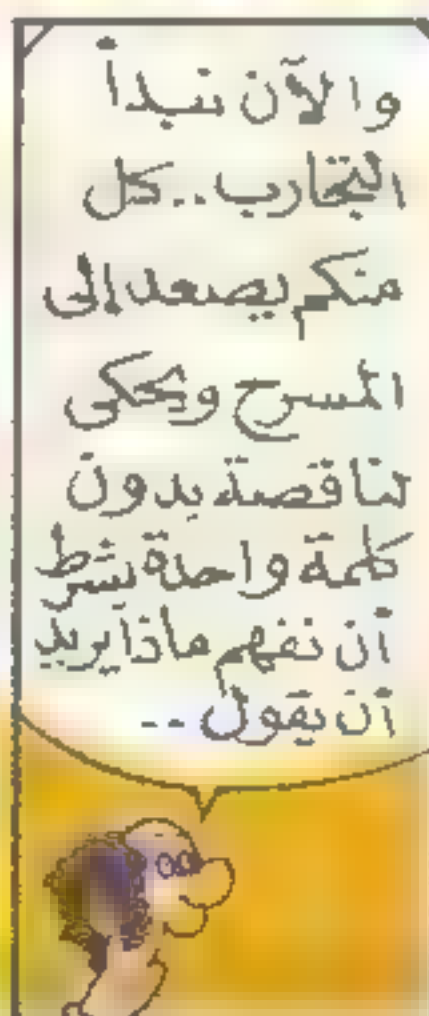 والآن نبدأ
التجارب..كل
منكم يصعد إلى
المسرح ويحكى
لنا قصة بدون
كلمة واحدة بشرط
أن نفهم ماذا يريد
أن يقول..